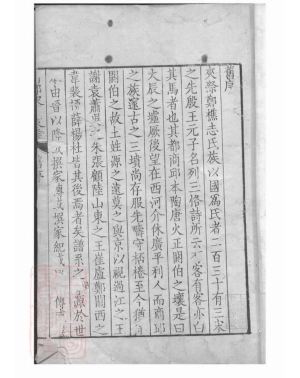 舊序
夾漈鄭樵志氏族以國爲氏者二百三十有三宋
之先殷王元子名列三恪詩所云有客有客亦白
其馬者也其都商邱本陶唐火正閼伯之壤是曰
大辰之墟厥後望在西河介休廣平利人而商邱
之族邃古之三墳尚存服先疇守桮棬至今猶
閼伯之故土姓源之遠莫之與京以視過江之王
謝袁蕭吳之朱張顧陸山東之王崔盧鄭關西之
韋裴柳薛楊杜皆其後焉者矣譜系之 於世
宙晉以降